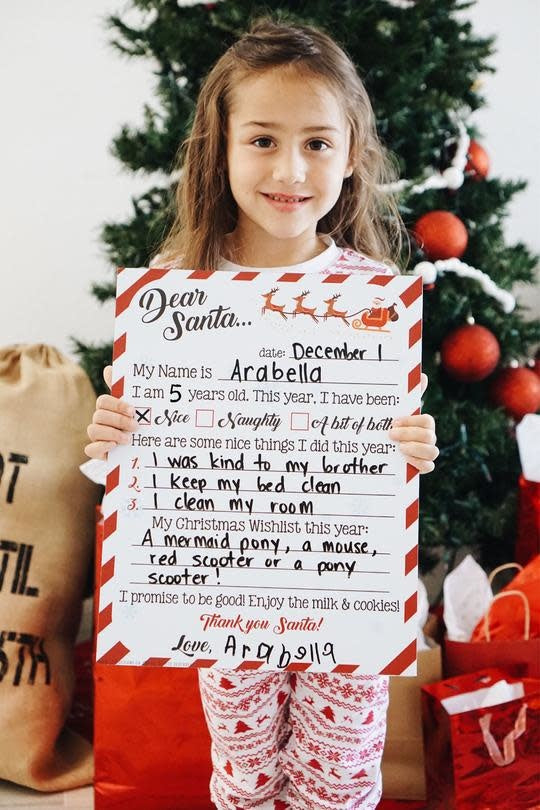 Dear
Santa...
date: December 1
My Name is Arabella
I am 5 years old. This year, I have been:
Nice Naughty A bit of both
Here are some nice things I did this year:
1. I was kind to my brother
2. I keep my bed clean
3. I clean my room
My Christmas Wishlist this year:
A mermaid pony, a mouse,
red scooter or a pony
scooter!
I promise to be good! Enjoy the milk & cookies!
Thank you Santa!
Love, Arabella